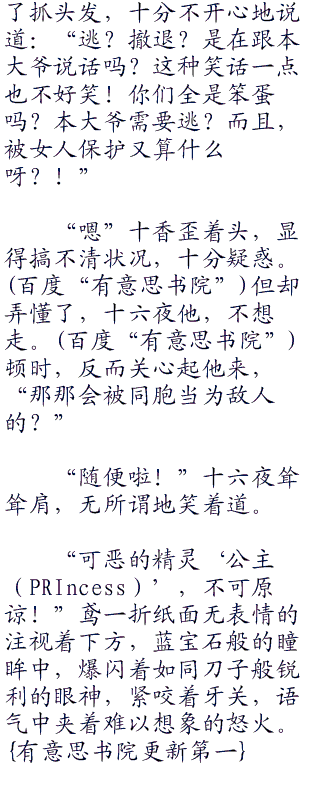 了抓头发，十分不开心地说
道：“逃？撤退？是在跟本
大爷说话吗？这种笑话一点
也不好笑！你们全是笨蛋
吗？本大爷需要逃？而且，
被女人保护又算什么
呀？！”
“嗯”十香歪着头，显
得搞不清状况，十分疑惑。
(百度“有意思书院”)但却
弄懂了，十六夜他，不想
走。(百度“有意思书院”)
顿时，反而关心起他来，
“那那会被同胞当为敌人
的？”
“随便啦！”十六夜耸
耸肩，无所谓地笑着道。
“可恶的精灵‘公主
（PRIncess）’，不可原
谅！”鸢一折纸面无表情的
注视着下方，蓝宝石般的瞳
眸中，爆闪着如同刀子般锐
利的眼神，紧咬着牙关，语
气中夹着难以想象的怒火。
{有意思书院更新第一}